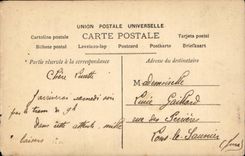 UNION POSTALE UNIVERSELLE
CARTE POSTALE
Cartolina postale Tarjeta postal
Bichete postal Levelezo-lap Postcard Postkarte Briefkaart
Partie réservée à la correspondance
Adresse du destinataire
Chère Lucette
J'arriverai samedi soir
par le train de 9h
Dans cette attente mille
baisers
Mademoiselle
Lucie Gaillard
rue des
Lons-le-Saunier
(Jura)